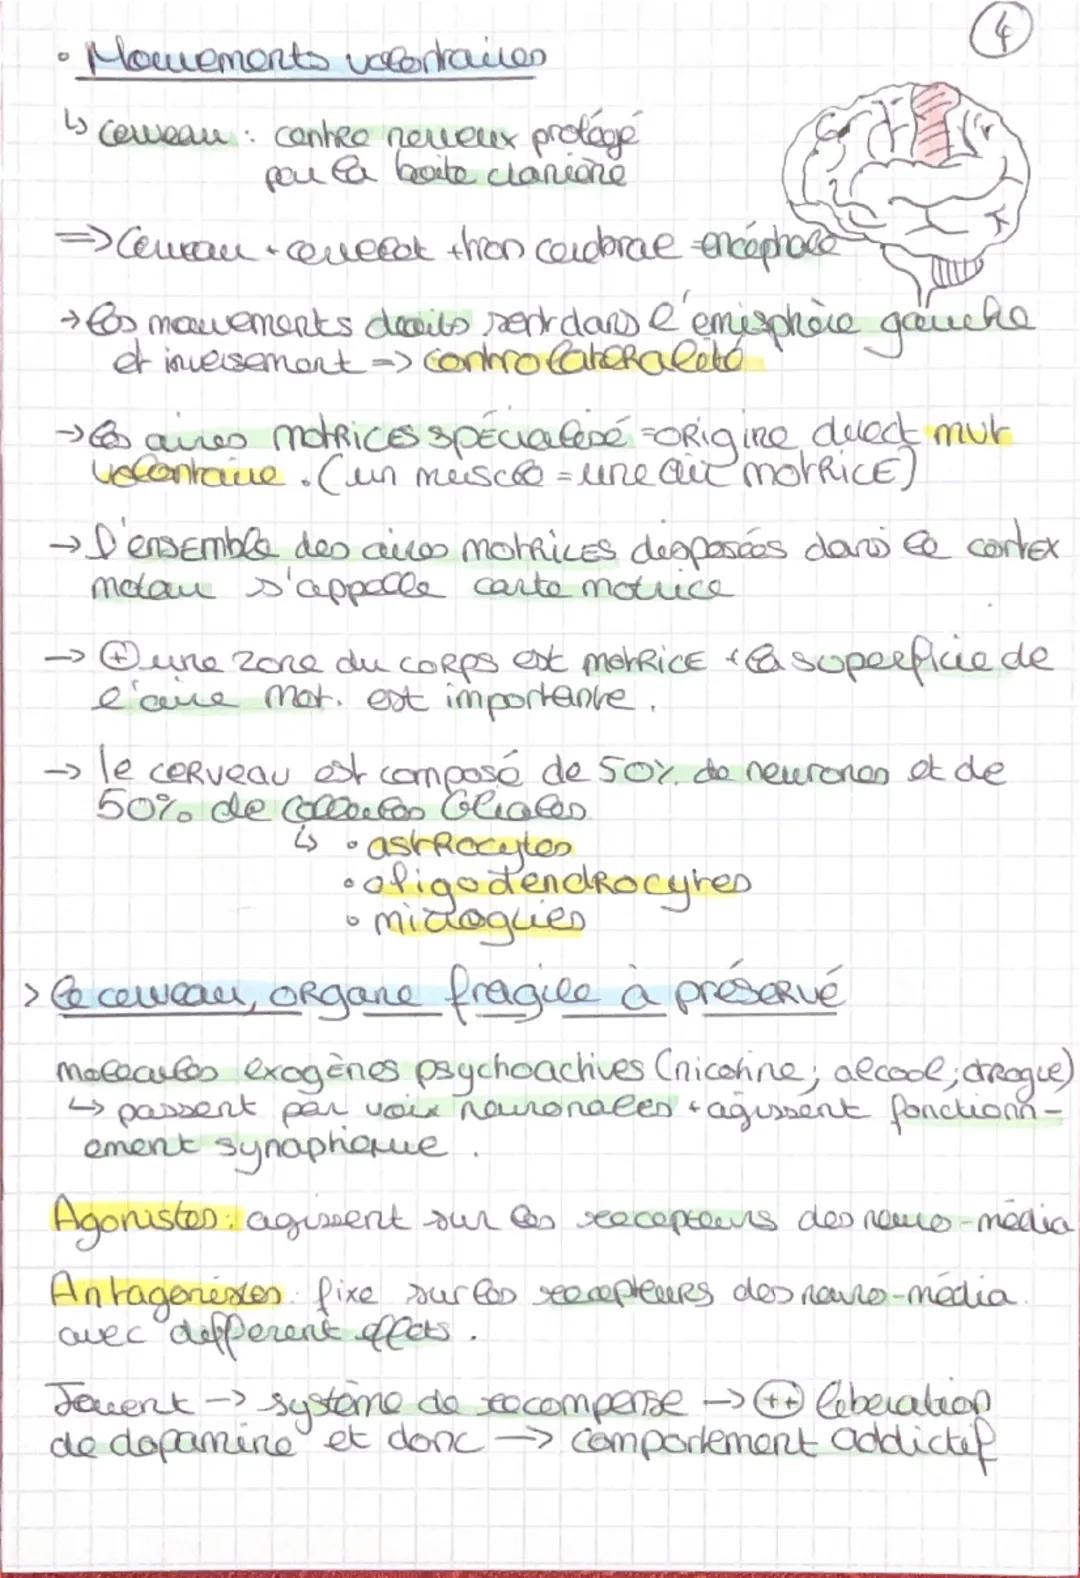 4
• Mouvements volontaires
↳ cerveau : centre nerveux protégé
par la boite clanière
=> Cerveau + cervelet + tron cérébrae = encéphale
→ les mouvements droits sont dans l'émisphère gauche
et inversement => controlatéralité
→ les aires motrices spécialisé = origine direct mvt
volontaire. (un muscle = une air motrice)
→ L'ensemble des aires motrices disposées dans le cortex
moteur s'appelle carte motrice
→ ⊕ une zone du corps est motrice + la superficie de
l'aire mot. est importante.
→ le cerveau est composé de 50% de neurones et de
50% de cellules Gliales
↳ • astrocytes
• oligodendrocytes
• microglies
> le cerveau, organe fragile à préservé
molécules exogènes psychoactives (nicotine; alcool; drogue)
↳ passent par voix neuronales + agissent fonctionn-
ement synaptique.
Agonistes: agissent sur les recepteurs des neuro-média
Antagonistes: fixe sur les recepteurs des neuro-média.
avec different effets.
Jouent → système de recompense → (++) liberation
de dopamine et donc → comportement addictif